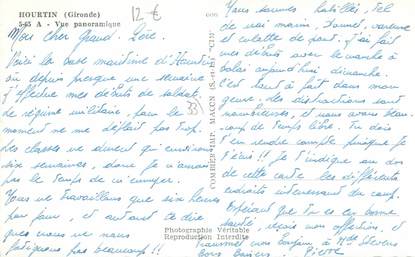 HOURTIN (Gironde)
545 A - Vue panoramique
12 €
Mon cher Grand-Père
Voici la base maritime d'Hourtin
où depuis presque une semaine
j'effectue mes débuts de soldat.
Le régime militaire, pour le
moment ne me déplait pas trop.
Les classes ne durent qu'environ
six semaines, donc je n'aurai
pas le temps de m'ennuyer.
Nous ne travaillons que six heures
par jour, et autant te dire
que nous ne nous
fatiguons pas beaucoup !!
COMBIER IMP. MACON (S.-et-L.) "CIM"
Photographie Véritable
Reproduction Interdite
Nous sommes habillés, tel
de vrai marin, bonnet, vareuse
et culotte de pont. J'ai fait
mes débuts avec le manche à
balai aujourd'hui dimanche.
C'est tout à fait dans mon
genre, les distractions sont
nombreuses, et nous avons beau-
coup de temps libre. Tu dois
t'en rendre compte puisque je
t'écris !! Je t'indique au dos
de cette carte les différents
endroits intéressant du camp.
Espérant que tu es en bonne
santé, reçois mon affection, et
transmet mon bonjour à Mde
Bons Baisers Pierre